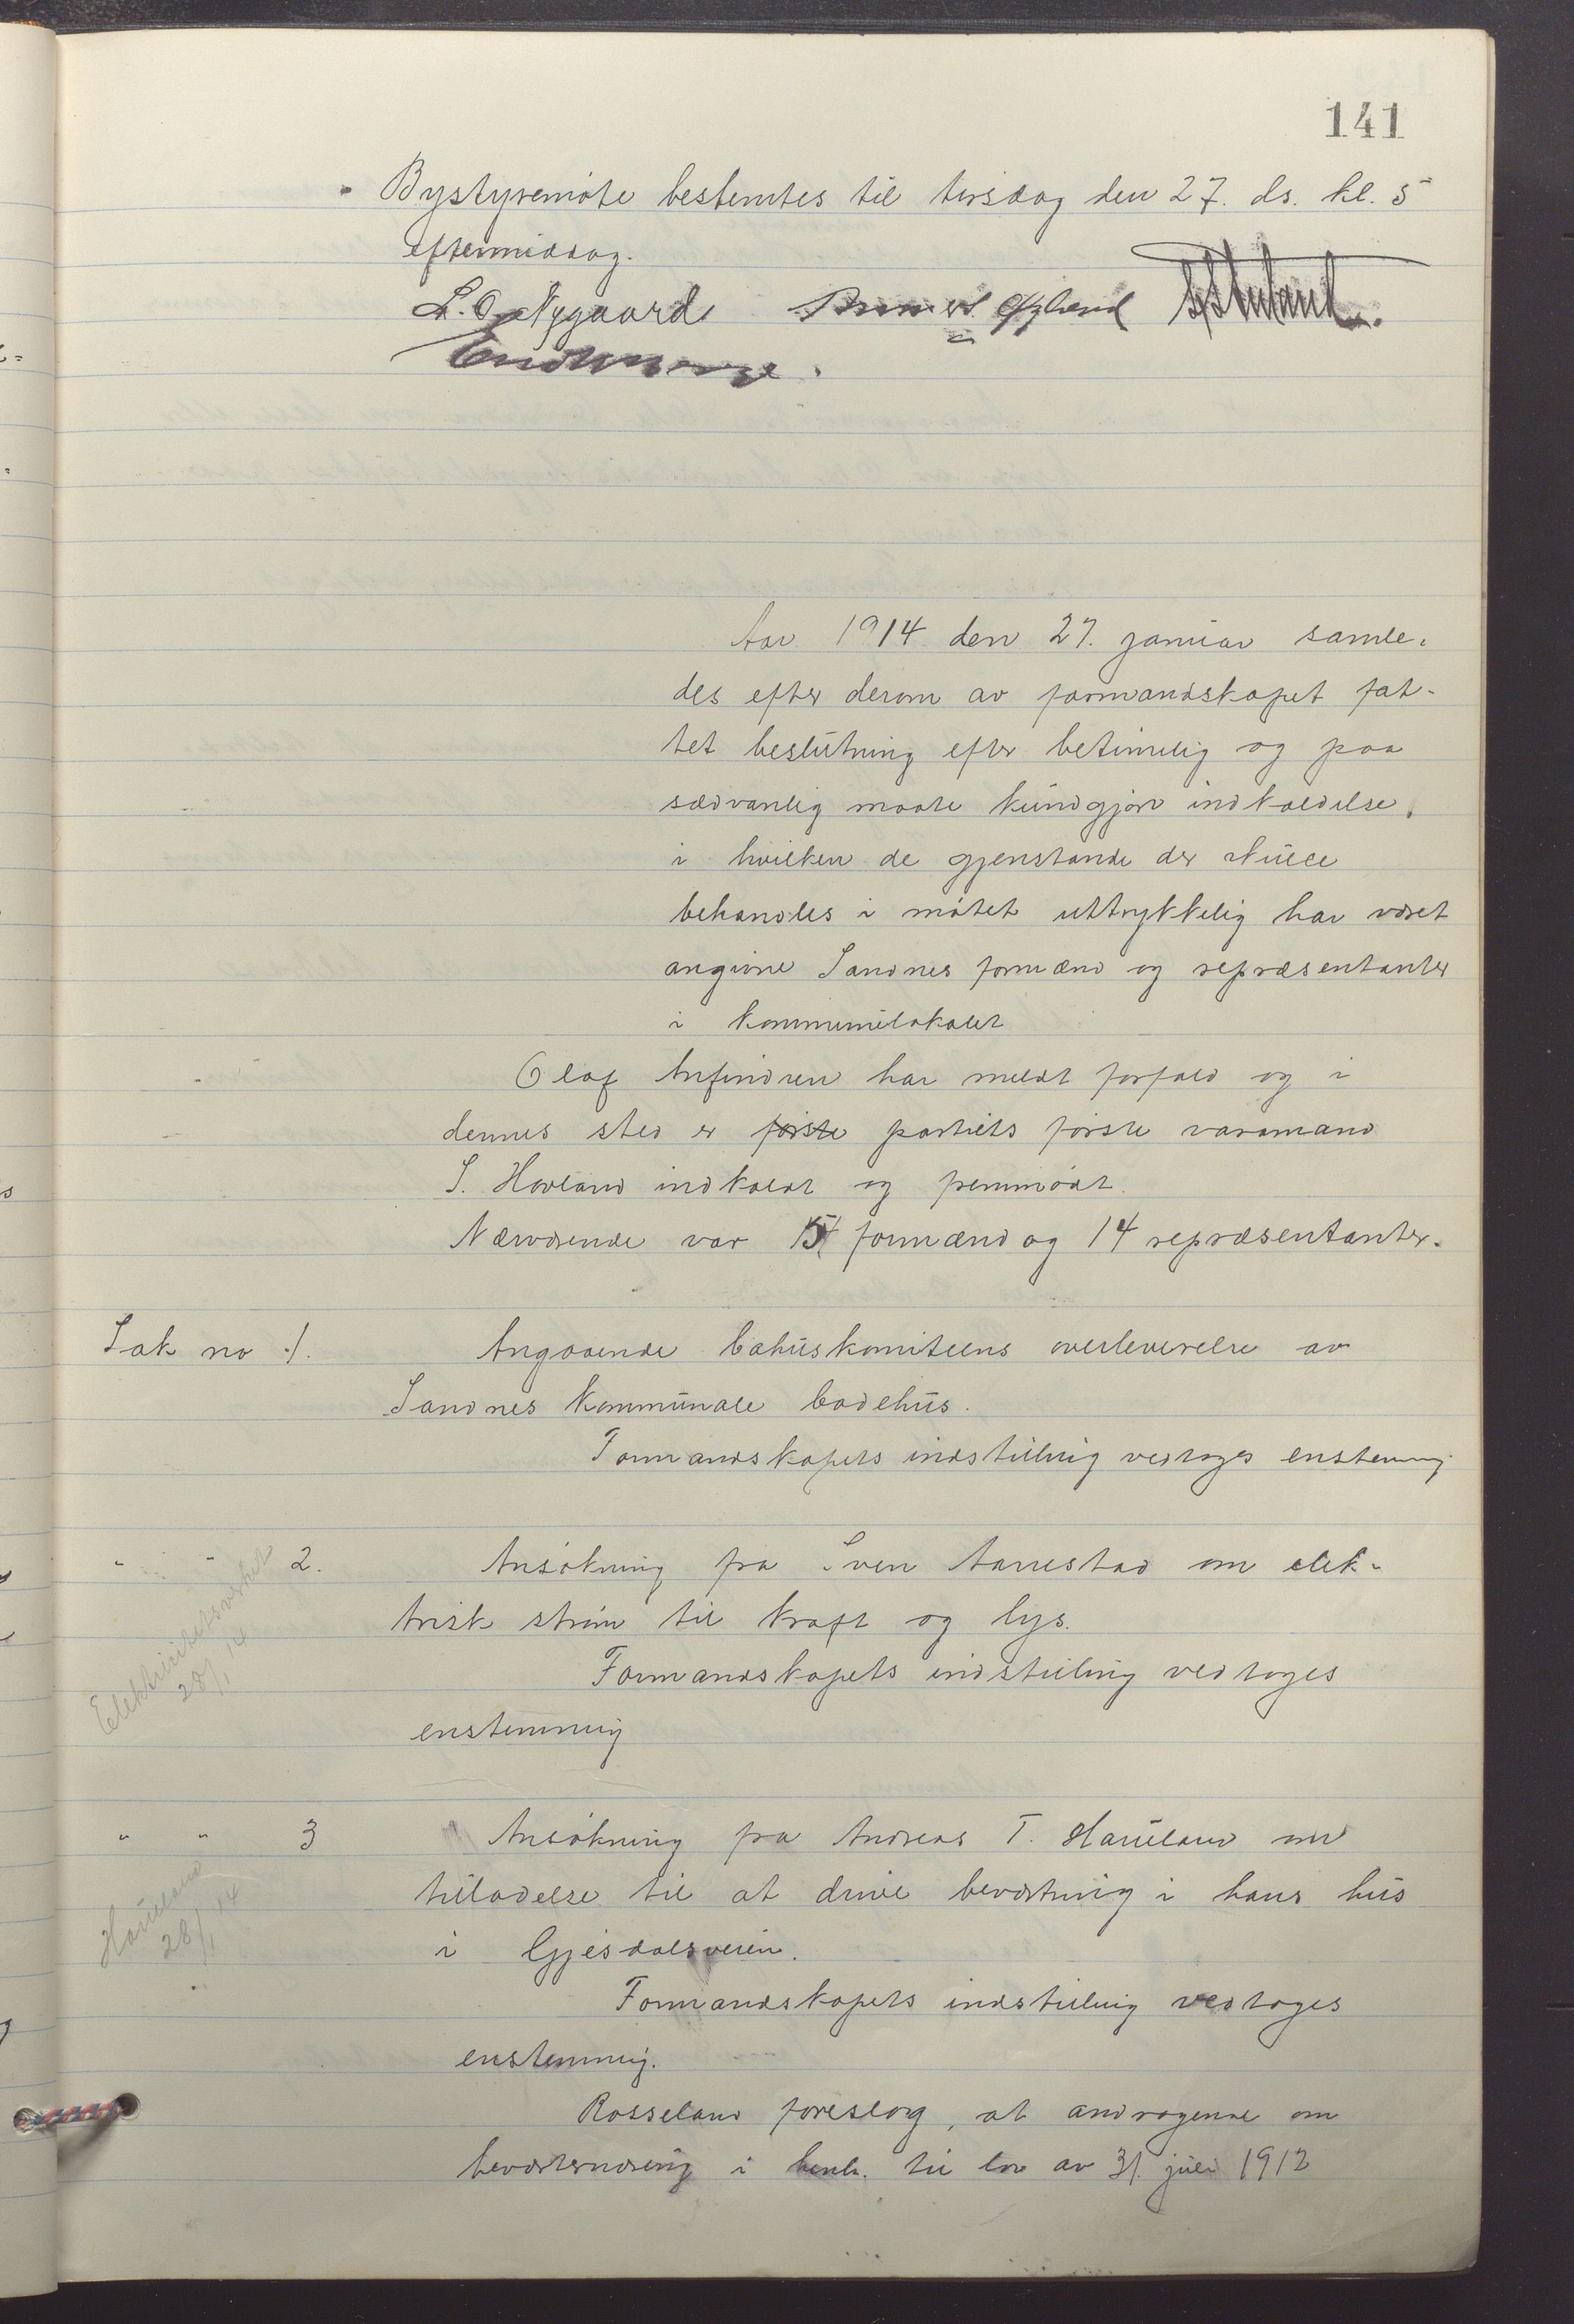 141
Bystyremöte bestemtes til tirsdag den 27. ds. kl. 5
eftermiddag.
L. O. Nygaard
Aar 1914 den 27. januar samle-
des efter derom av formandskapet fat-
tet beslutning efter betimelig og paa
sædvanlig maate kundgjort indkaldelse,
i hvilken de gjenstande der skulle
behandles i mötet uttrykkelig har været
angivne Sandnes formænd og repræsentanter
i kommunelokalet
Olaf Anfindsen har meldt forfald og i
dennes sted er förste partiets förste varamand
S. Hovland indkaldt og fremmödt.
Nærværende var 5 formænd og 14 repræsentanter.
Sak no 1. Angaaende bahuskomiteens overleverelse av
Sandnes kommunale badehus.
Formandskapets indstilling vedtoges enstemmig
" " 2. Ansökning fra Sven Aarrestad om elek-
trisk ström til kraft og lys.
Formandskapets indstilling vedtoges
enstemmig
Elektricitetsverket
28/1 14
" " 3 Ansökning fra Andreas T. Haueland om
tilladelse til at drive bevertning i hans hus
i Gjesdalsveien.
Formandskapets indstilling vedtoges
enstemmig.
Haueland
28/1 14
Rosseland foreslog, at andragende om
beverternæring i henh. til lov av 31. juli 1912